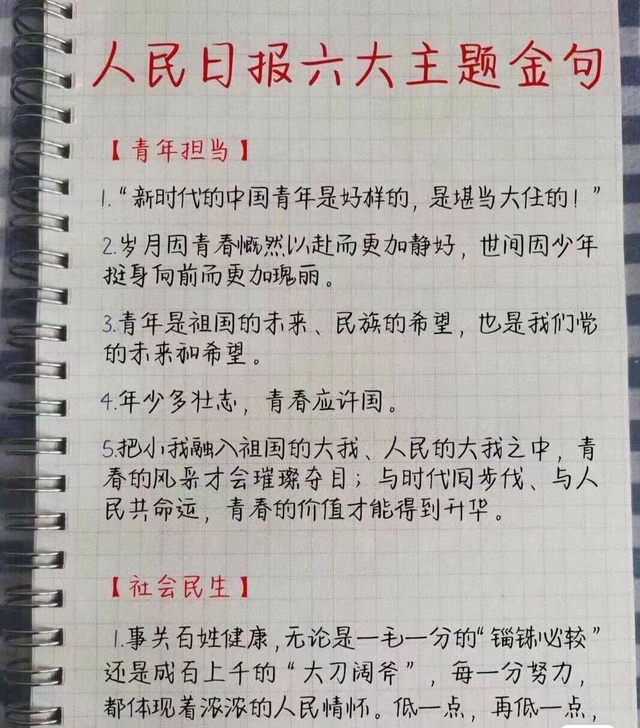 人民日报六大主题金句
【青年担当】
1.“新时代的中国青年是好样的，是堪当大任的！”
2.岁月因青春慨然以赴而更加静好，世间因少年
挺身向前而更加瑰丽。
3.青年是祖国的未来、民族的希望，也是我们党
的未来和希望。
4.年少多壮志，青春应许国。
5.把小我融入祖国的大我、人民的大我之中，青
春的风采才会璀璨夺目；与时代同步伐、与人
民共命运，青春的价值才能得到升华。
【社会民生】
1.事关百姓健康，无论是一毛一分的“锱铢必较”
还是成百上千的“大刀阔斧”，每一分努力，
都体现着浓浓的人民情怀。低一点，再低一点，